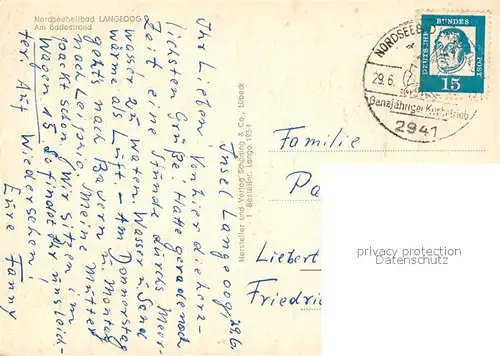 Nordseeheilbad LANGEOOG
Am Badestrand
Insel Langeoog, 29.6.
Ihr Lieben! Von hier die herz-
lichsten Grüße. Hatte gerade noch
Zeit eine Stunde durchs Meer-
wasser zu waten. Wasser u. Sand
wärmer als Luft. - Am Donnerstag
gehts nach Bayern u. Montag
nach Leipzig. Meine Mutter
packt schon. Wir sitzen im
Wagen 15. So findet Ihr uns leich-
ter. Auf Wiedersehen!
Eure Fanny
Hersteller und Verlag Schöning & Co., Lübeck
Bestellnr. Lango 1951
NORDSEE
29.6.
Ganzjähriger Kurbetrieb
2941
DEUTSCHE BUNDES POST
15
Familie
Pa
Liebert
Friedri
privacy protection
Datenschutz